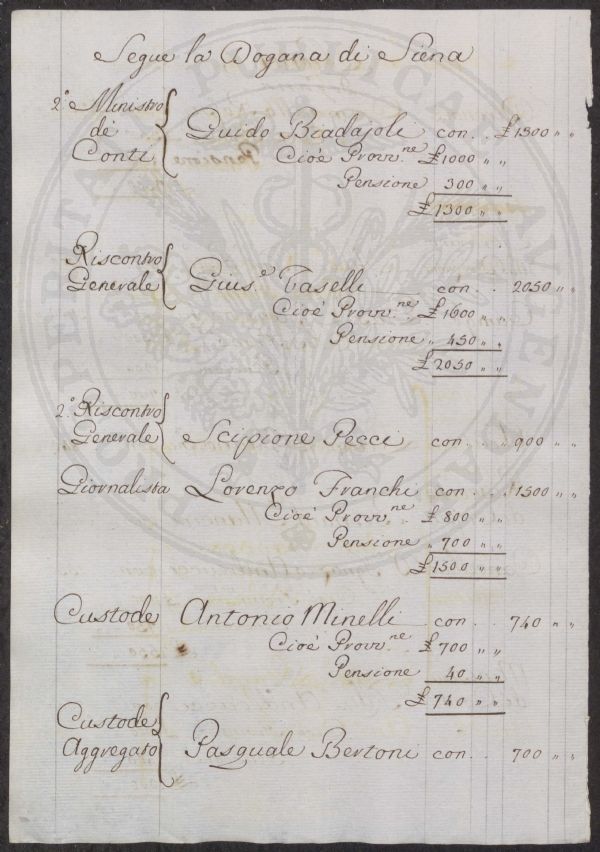 Segue la Dogana di Siena
2.° Ministro de' Conti { Guido Biadajoli con . . £ 1300 " "
Cioè Provv.ne £ 1000 " "
Pensione 300 " "
£ 1300 " "
Riscontro Generale { Gius.e Taselli con . . 2050 " "
Cioè Provv.ne £ 1600 " "
Pensione " 450 " "
£ 2050 " "
2.° Riscontro Generale { Scipione Pecci con . . " 900 " "
Giornalista Lorenzo Franchi con . . 1500 " "
Cioè Provv.ne £ 800 " "
Pensione " 700 " "
£ 1500 " "
Custode Antonio Minelli con . . 740 " "
Cioè Provv.ne £ 700 " "
Pensione 40 " "
£ 740 " "
Custode Aggregato { Pasquale Bertoni con . . 700 " "